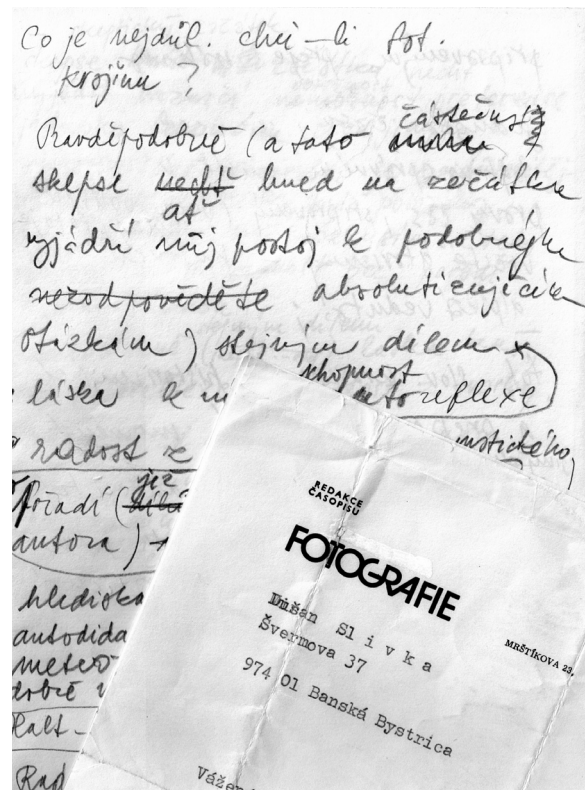 Co je nejdůl. chci-li fot.
krajinu?
Pravděpodobně (a tato částečná
skepse nechť hned na začátku
ať
vyjádří můj postoj k podobným
nezodpovědět absolutizujícím
otázkám) stejným dílem
schopnost
láska k autoreflexe
radost z mistického,
již
Pořadí (
autora)
hlediska
autodida
meteo
dobré
Halt-
Rad
REDAKCE
ČASOPISU
FOTOGRAFIE
MRŠTÍKOVA 23,
Dušan Slivka
Švermova 37
974 01 Banská Bystrica
Vážen